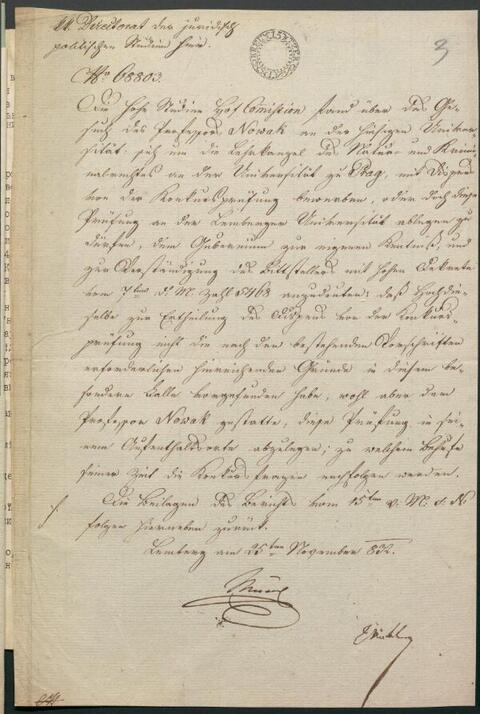 k.k. Directorat der juridisch
politischen Studien hier.
3
No 68803.
Die hohe Studien Hof Comission fand über das Ge-
such des Professors Nowak an der hiesigen Univer-
sität sich um die Lehrkanzel des Natur- und Krimi-
nalrechtes an der Universität zu Prag, mit Dispens
von der Konkursprüfung bewerben, oder doch diese
Prüfung an der Lemberger Universität ablegen zu
dürfen, dem Gubernium zur eigenen Kentniß, und
zur Verständigung des Bittstellers mit hohem Dekrete
vom 7ten d. M. Zahl 5463 anzudeuten: daß Hochdie-
selbe zur Ertheilung der Dispens von der Konkurs-
prüfung nicht die nach den bestehenden Vorschriften
erforderlichen hinreichenden Gründe in diesem be-
sondern Falle vorgefunden habe, wohl aber dem
Professor Nowak gestatte, diese Prüfung in sei-
nem Aufenthaltsorte abzulegen; zu welchem Behufe
seiner Zeit die Konkursfragen nachfolgen werden.
Die Beilagen des Berichts vom 15ten v. M. d. No
folgen hierneben zurück.
Lemberg am 25ten November 832.